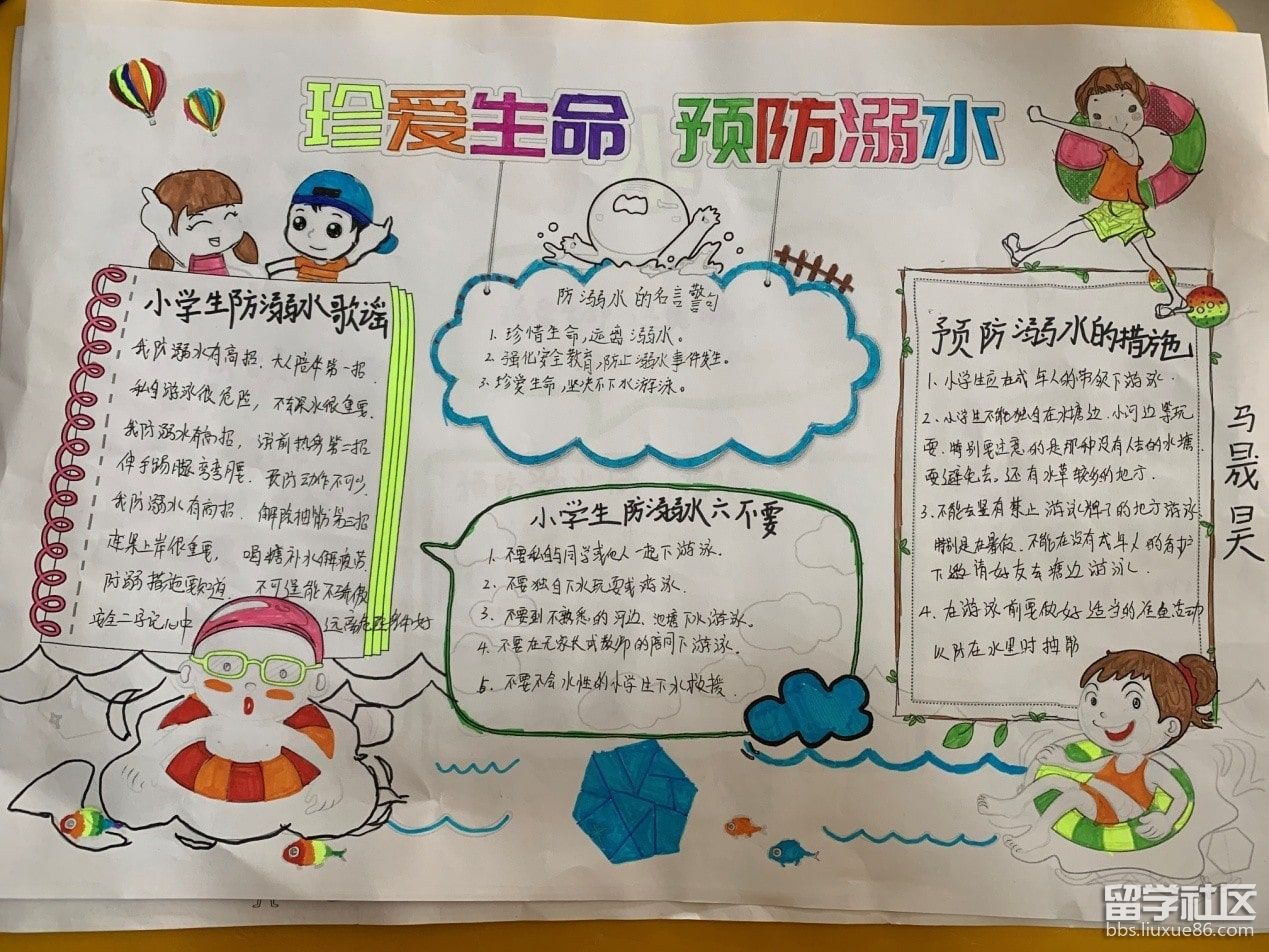 珍爱生命 预防溺水
小学生防溺水歌谣
我防溺水有高招.大人陪伴第一招.
私自游泳很危险，不去深水很重要.
我防溺水有高招，游前热身第二招
伸手踢腿弯弯腰.预防动作不可少.
我防溺水有高招.解除抽筋第三招
上岸很重要，喝糖补水解疲劳.
防溺措施要知道.不可逞能不骄傲
安全二字记心中
防溺水的名言警句
1.珍惜生命，远离溺水。
2.强化安全教育，防止溺水事件发生。
3.珍爱生命，坚决不下水游泳。
小学生防溺水六不要
1.不要私自与同学或他人一起下游泳.
2.不要独自下水玩耍或游泳.
3.不要到不熟悉的河边、池塘下水游泳。
4.不要在无家长或教师的陪同下游泳.
5.不要不会水性的小学生下水救援.
预防溺水的措施
1.小学生应在成年人的带领下游泳.
2.小学生不能独自在水塘边.小河边等玩
耍.特别要注意的是那种没有人去的水塘
要避免去。还有水草较多的地方.
3.不能去里有禁止游泳牌子的地方游泳
特别是在暑假.不能在没有成年人的看护
下邀请好友去塘边游泳.
4.在游泳前要做好适当的准备运动
以防在水里时抽筋
马晟昊
留学社区
bbs.liuxue86.com